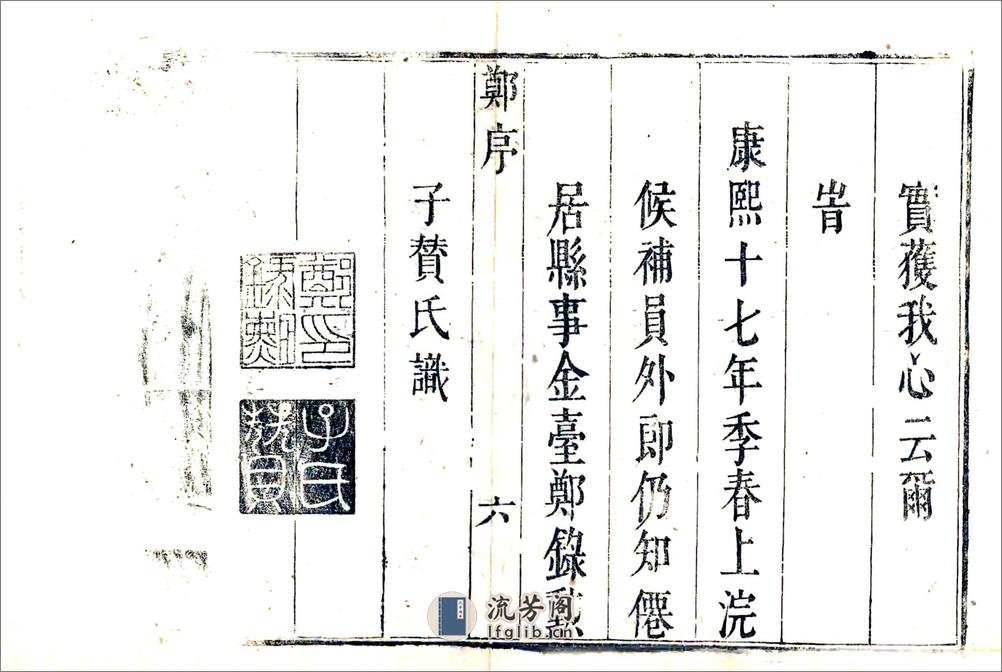 實獲我心云爾
旹
康熙十七年季春上浣
候補員外郎仍知僊
居縣事金臺鄭錄勳
鄭序 六
子賛氏識
鄭印錄勳
子賛氏
流芳阁
lfglib.cn